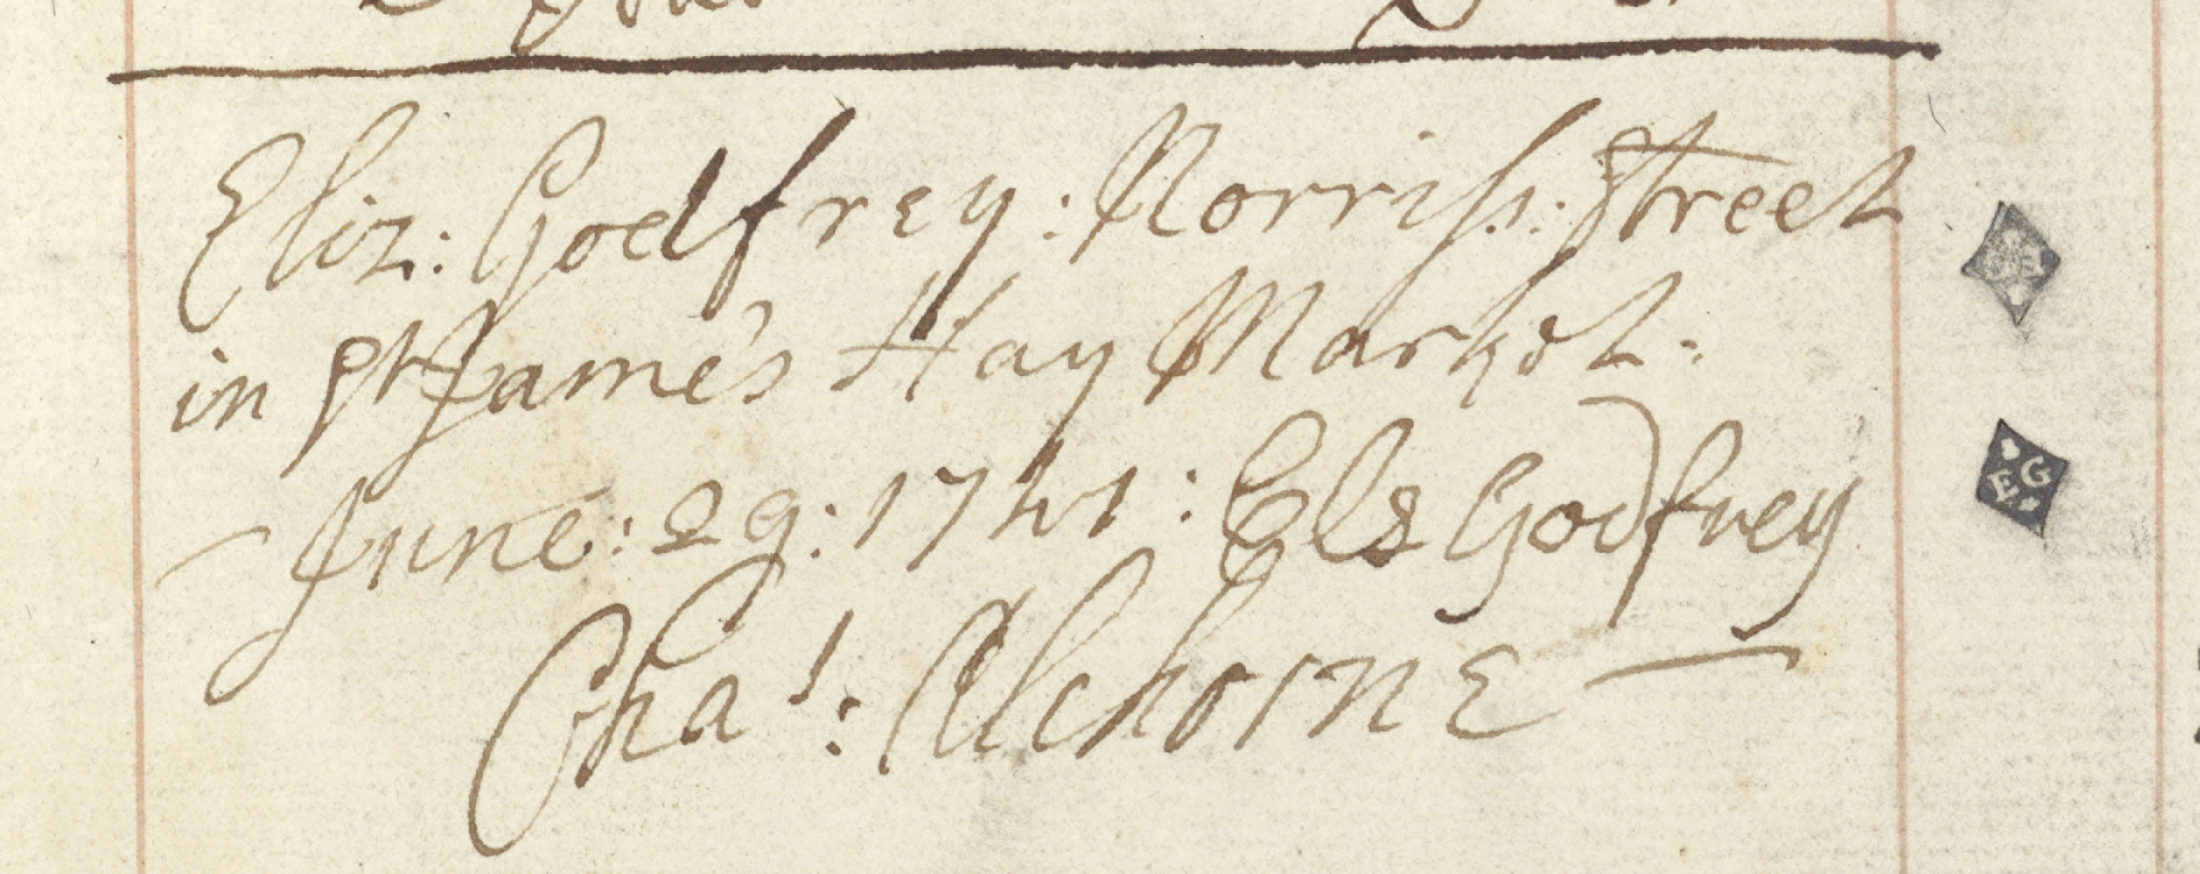 Eliz: Godfrey: Norriss: Street
in St James Hay Market:
June: 29: 1741: Els Godfrey
EG
Chas: Alchorne